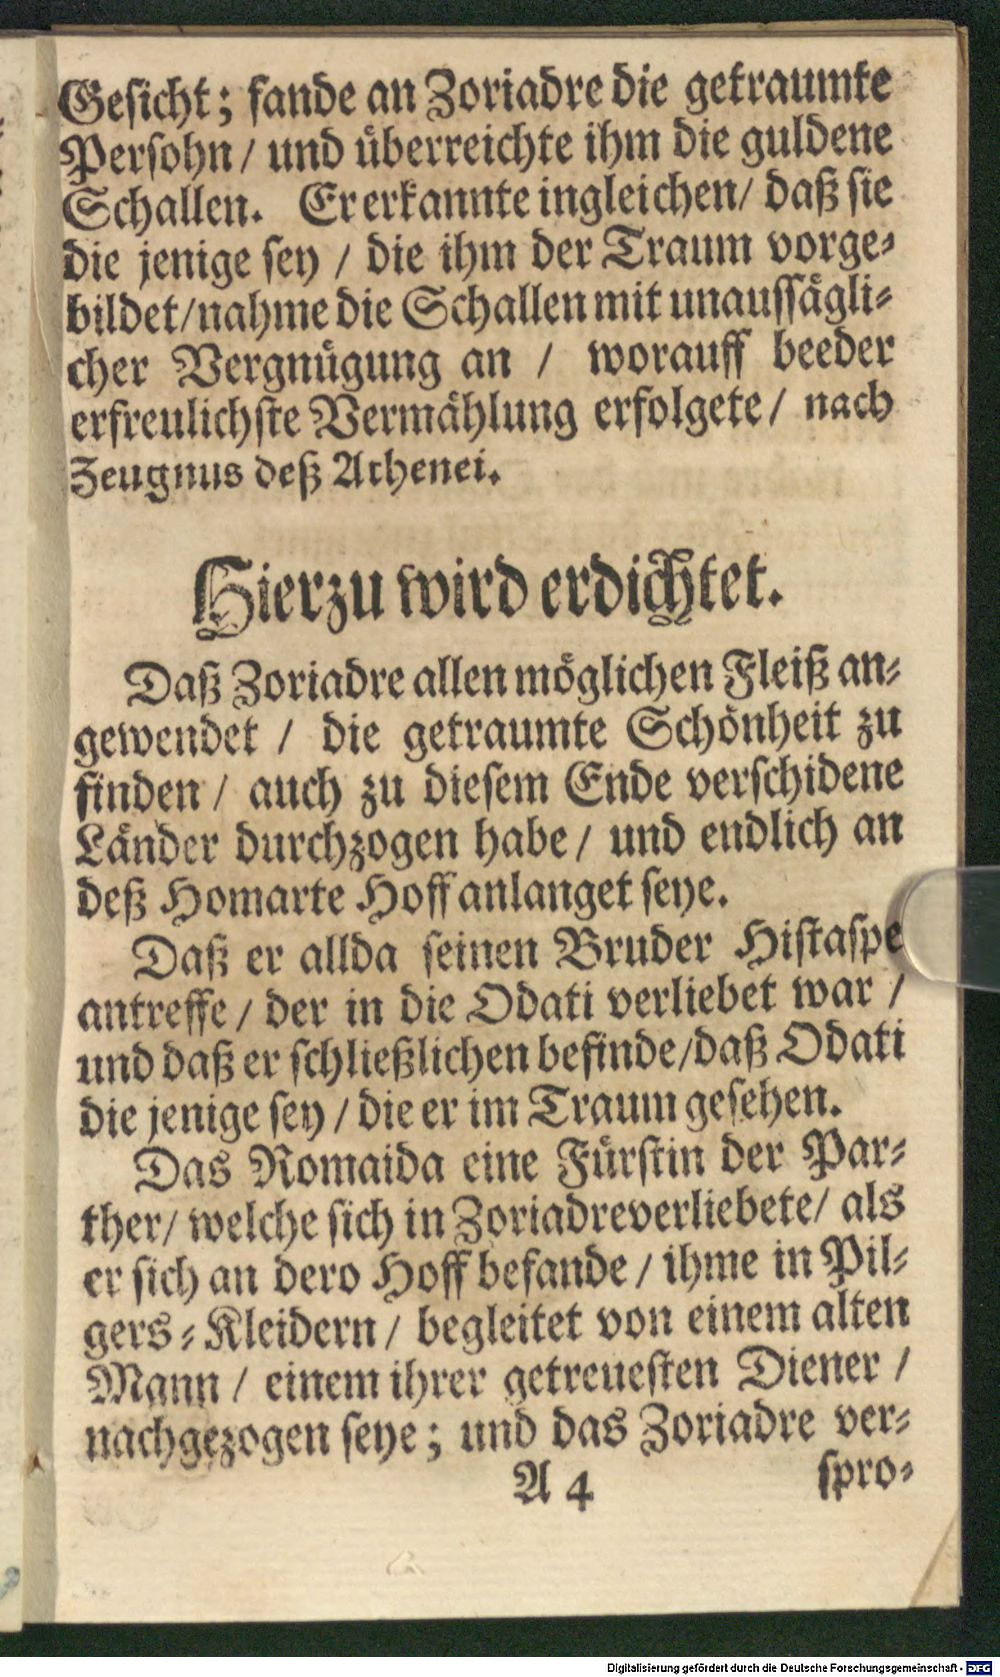 Gesicht; fande an Zoriadre die getraumte
Persohn / und überreichte ihm die guldene
Schallen. Er erkannte ingleichen / daß sie
die jenige sey / die ihm der Traum vorge-
bildet / nahme die Schallen mit unaussägli-
cher Vergnügung an / worauff beeder
erfreulichste Vermählung erfolgete / nach
Zeugnus deß Athenei.
Hierzu wird erdichtet.
Daß Zoriadre allen möglichen Fleiß an-
gewendet / die getraumte Schönheit zu
finden / auch zu diesem Ende verschidene
Länder durchzogen habe / und endlich an
deß Homarte Hoff anlanget seye.
Daß er allda seinen Bruder Histaspe
antreffe / der in die Odati verliebet war /
und daß er schließlichen befinde / daß Odati
die jenige sey / die er im Traum gesehen.
Das Romaida eine Fürstin der Par-
ther / welche sich in Zoriadre verliebete / als
er sich an dero Hoff befande / ihme in Pil-
gers-Kleidern / begleitet von einem alten
Mann / einem ihrer getreuesten Diener /
nachgezogen seye; und das Zoriadre ver-
A 4 spro-
Digitalisierung gefördert durch die Deutsche Forschungsgemeinschaft - DFG